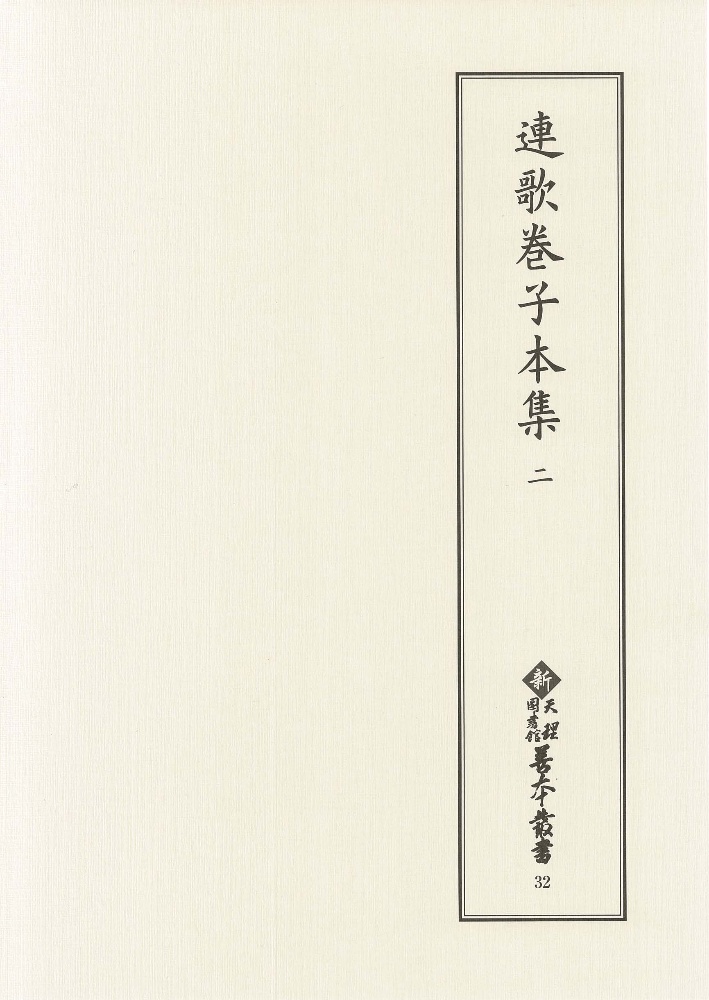 連歌巻子本集
二
新
天理
図書館
善本叢書
32